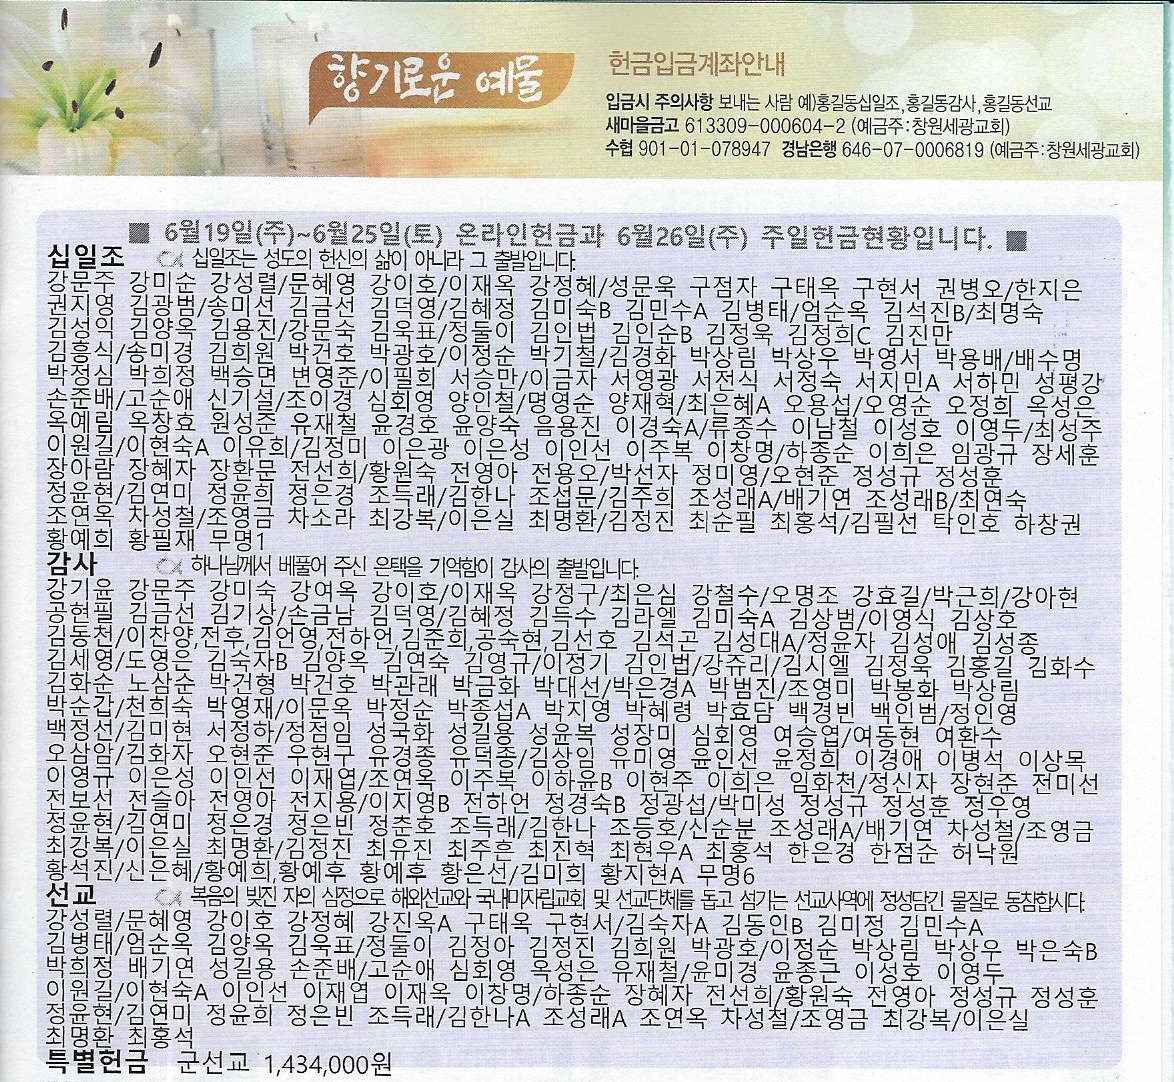 향기로운 예물
헌금입금계좌안내
입금시 주의사항 보내는 사람 예)홍길동십일조,홍길동감사,홍길동선교
새마을금고 613309-000604-2 (예금주:창원세광교회)
수협 901-01-078947 경남은행 646-07-0006819 (예금주:창원세광교회)
■ 6월19일(주)~6월25일(토) 온라인헌금과 6월26일(주) 주일헌금현황입니다. ■
십일조 십일조는 성도의 헌신의 삶이 아니라 그 출발입니다.
강문주 강미순 강성렬/문혜영 강이호/이재옥 강정혜/성문욱 구점자 구태옥 구현서 권병오/한지은
권지영 김광범/송미선 김금선 김덕영/김혜정 김미숙B 김민수A 김병태/엄순옥 김석진B/최명숙
김성익 김양옥 김용진/강문숙 김욱표/정둘이 김인법 김인순B 김정욱 김정희C 김진만
김흥식/송미경 김희원 박건호 박광호/이정순 박기철/김경화 박상림 박상우 박영서 박용배/배수명
박정심 박희정 백승면 변영준/이필희 서승만/이금자 서영광 서전식 서정숙 서지민A 서하민 성평강
손준배/고순애 신기설/조이경 심회영 양인철/명영순 양재혁/최은혜A 오용섭/오영순 오정희 옥성은
옥예림 옥창효 원성준 유재철 윤경호 윤양숙 음용진 이경숙A/류종수 이남철 이성호 이영두/최성주
이원길/이현숙A 이유희/김정미 이은광 이은성 이인선 이주복 이창명/하종순 이희은 임광규 장세훈
장아람 장혜자 장환문 전선희/황원숙 전영아 전용오/박선자 정미영/오현준 정성규 정성훈
정윤현/김연미 정윤희 정은경 조득래/김한나 조섭문/김주희 조성래A/배기연 조성래B/최연숙
조연옥 차성철/조영금 차소라 최강복/이은실 최명환/김정진 최순필 최홍석/김필선 탁인호 하창권
황예희 황필재 무명1
감사 하나님께서 베풀어 주신 은택을 기억함이 감사의 출발입니다.
강기윤 강문주 강미숙 강여옥 강이호/이재옥 강정구/최은심 강철수/오명조 강효길/박근희/강아현
공현필 김금선 김기상/손금남 김덕영/김혜정 김득수 김라엘 김미숙A 김상범/이영식 김상호
김동천/이찬양,전후,김언영,전하언,김준희,공숙현,김선호 김석곤 김성대A/정윤자 김성애 김성종
김세영/도영은 김숙자B 김양옥 김연숙 김영규/이정기 김인법/강쥬리/김시엘 김정욱 김홍길 김화수
김화순 노삼순 박건형 박건호 박관래 박금화 박대선/박은경A 박범진/조영미 박봉화 박상림
박순갑/천희숙 박영재/이문옥 박정순 박종섭A 박지영 박혜령 박효담 백경빈 백인범/정인영
백정선/김미현 서정하/정점임 성국화 성길용 성윤복 성장미 심회영 여승엽/여동현 여환수
오삼암/김화자 오현준 우현구 유경종 유덕종/김상임 유미영 윤인선 윤정희 이경애 이병석 이상목
이영규 이은성 이인선 이재엽/조연옥 이주복 이하윤B 이현주 이희은 임화천/정신자 장현준 전미선
전보선 전슬아 전영아 전지용/이지영B 전하언 정경숙B 정광섭/박미성 정성규 정성훈 정우영
정윤현/김연미 정은경 정은빈 정춘호 조득래/김한나 조등호/신순분 조성래A/배기연 차성철/조영금
최강복/이은실 최명환/김정진 최유진 최주흔 최진혁 최현우A 최홍석 한은경 한점순 허낙원
황석진/신은혜/황예희,황예후 황예후 황은선/김미희 황지현A 무명6
선교 복음의 빚진 자의 심정으로 해외선교와 국내미자립교회 및 선교단체를 돕고 섬기는 선교사역에 정성담긴 물질로 동참합시다.
강성렬/문혜영 강이호 강정혜 강진옥A 구태옥 구현서/김숙자A 김동인B 김미정 김민수A
김병태/엄순옥 김양옥 김욱표/정둘이 김정아 김정진 김희원 박광호/이정순 박상림 박상우 박은숙B
박희정 배기연 성길용 손준배/고순애 심회영 옥성은 유재철/윤미경 윤종근 이성호 이영두
이원길/이현숙A 이인선 이재엽 이재옥 이창명/하종순 장혜자 전선희/황원숙 전영아 정성규 정성훈
정윤현/김연미 정윤희 정은빈 조득래/김한나A 조성래A 조연옥 차성철/조영금 최강복/이은실
최명환 최홍석
특별헌금 군선교 1,434,000원